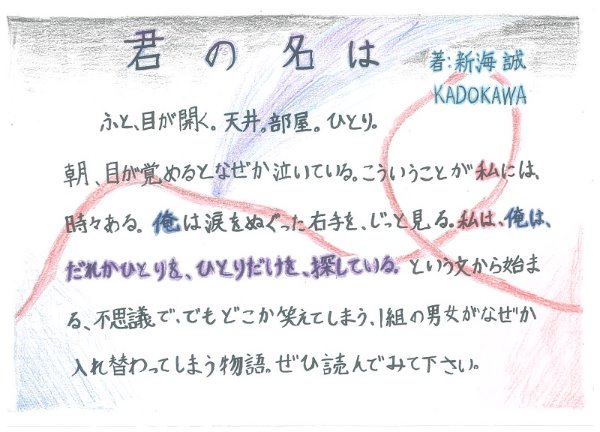 君の名は
著:新海誠
KADOKAWA
ふと、目が開く。天井。部屋。ひとり。
朝、目が覚めるとなぜか泣いている。こういうことが私には、
時々ある。俺は涙をぬぐった右手を、じっと見る。私は、俺は、
だれかひとりを、ひとりだけを、探している。という文から始ま
る、不思議で、でもどこか笑えてしまう、1組の男女がなぜか
入れ替わってしまう物語。ぜひ読んでみて下さい。